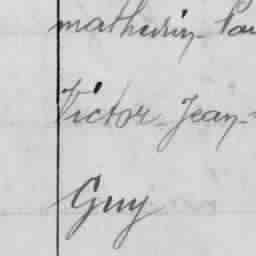 mathurin-
Victor-Jean-
Guy